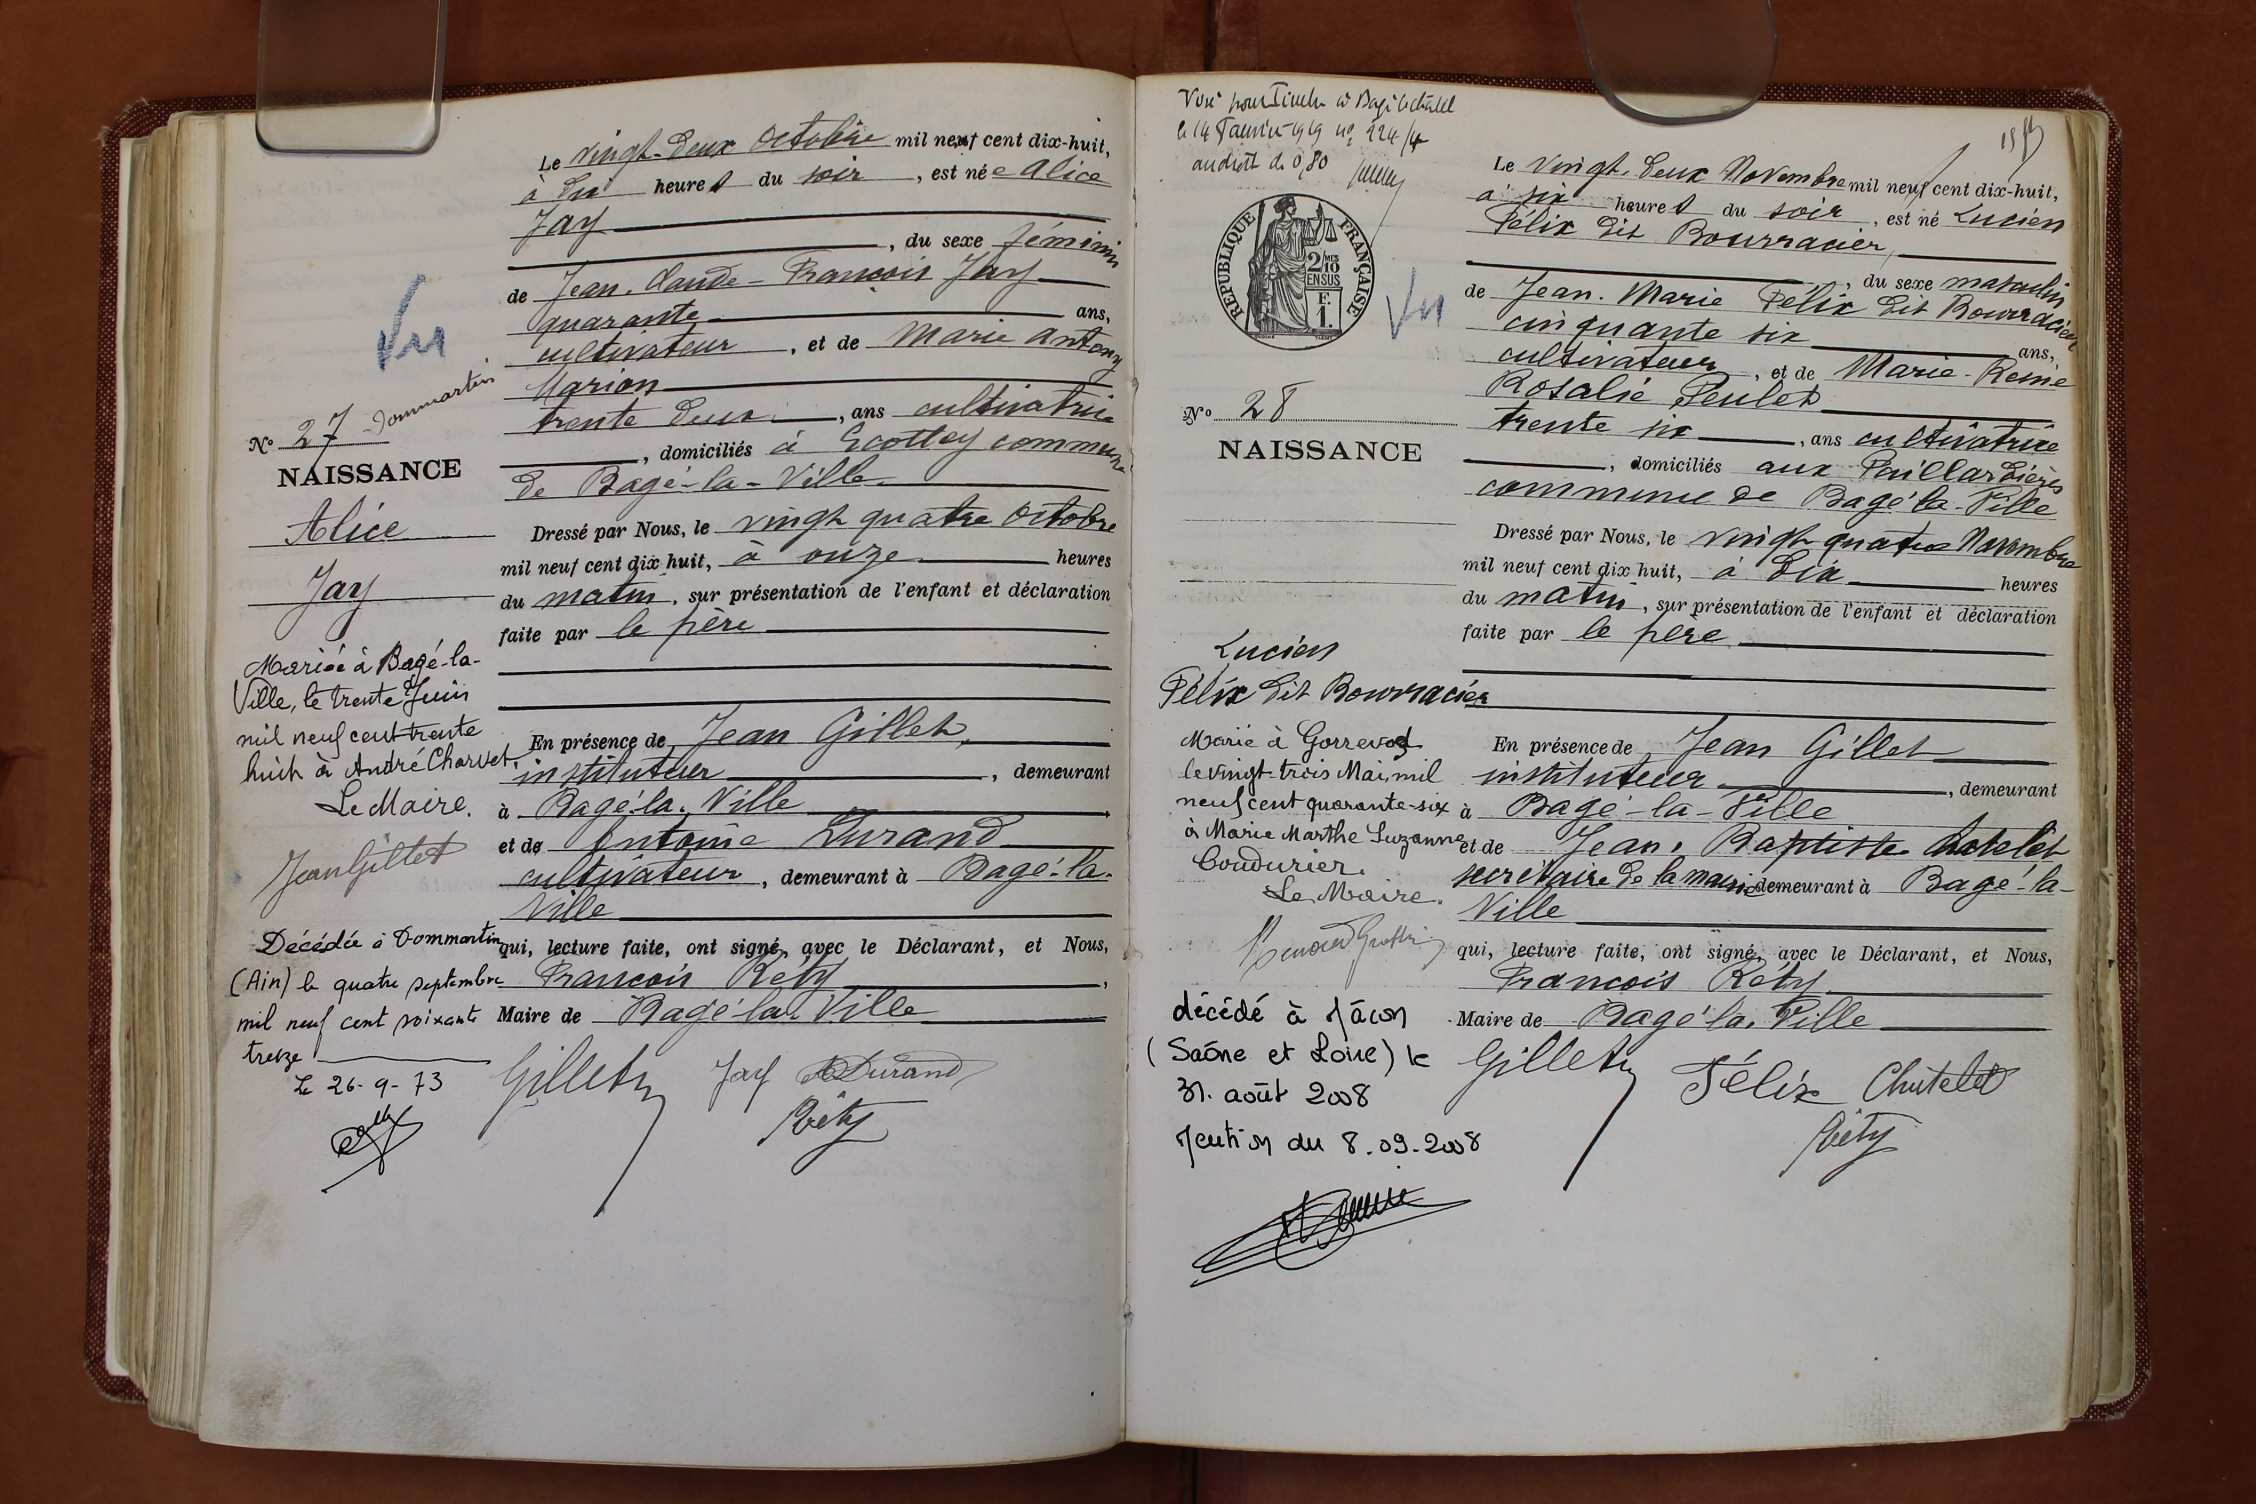 Le vingt-deux Octobre mil neuf cent dix-huit,
à dix heures du soir, est née Alice
Jay
, du sexe féminin
de Jean-Claude-François Jay
quarante ans,
cultivateur, et de Marie Antony
Marion
trente deux, ans cultivatrice
, domiciliés à Ecottey commune
de Bagé-la-Ville
Dressé par Nous, le vingt quatre Octobre
mil neuf cent dix huit, à onze heures
du matin, sur présentation de l'enfant et déclaration
faite par le père
En présence de Jean Gillet,
instituteur, demeurant
à Bagé-la-Ville
et de Antoine Durand
cultivateur, demeurant à Bagé-la-
Ville
qui, lecture faite, ont signé, avec le Déclarant, et Nous,
François Réty,
Maire de Bagé-la-Ville
Gillet Jay A Durand
Réty
Vu
Nº 27 Dommartin
NAISSANCE
Alice
Jay
Mariée à Bagé-la-
Ville, le trente Juin
mil neuf cent trente
huit à André Charvet.
Le Maire.
Jean Gillet
Décédée à Dommartin
(Ain) le quatre septembre
mil neuf cent soixante
treize
Le 26-9-73
Visé pour Timbre à Bagé le châtel
le 14 Janvier 1919 nº 224/4
au droit de 0,80
REPUBLIQUE FRANÇAISE
2/10 MES
EN SUS
F.
1.
Vu
Nº 28
NAISSANCE
Lucien
Félix dit Bourracier
Marié à Gorrevod
le vingt-trois Mai mil
neuf cent quarante-six
à Marie Marthe Suzanne
Coudurier.
Le Maire.
décédé à Mâcon
(Saône et Loire) le
31. août 2008
Mention du 8.09.2008
Le vingt-deux Novembre mil neuf cent dix-huit,
à six heures du soir, est né Lucien
Félix dit Bourracier,
, du sexe masculin
de Jean-Marie Félix dit Bourracier
cinquante six ans,
cultivateur, et de Marie-Reine
Rosalie Peulet
trente six, ans cultivatrice
, domiciliés aux Paillardières
commune de Bagé-la-Ville
Dressé par Nous, le vingt quatre Novembre
mil neuf cent dix huit, à dix heures
du matin, sur présentation de l'enfant et déclaration
faite par le père
En présence de Jean Gillet
instituteur, demeurant
à Bagé-la-Ville
et de Jean-Baptiste Chatelet
secrétaire de la mairie demeurant à Bagé-la-
Ville
qui, lecture faite, ont signé, avec le Déclarant, et Nous,
François Réty
Maire de Bagé-la-Ville
Gillet Félix Chatelet
Réty